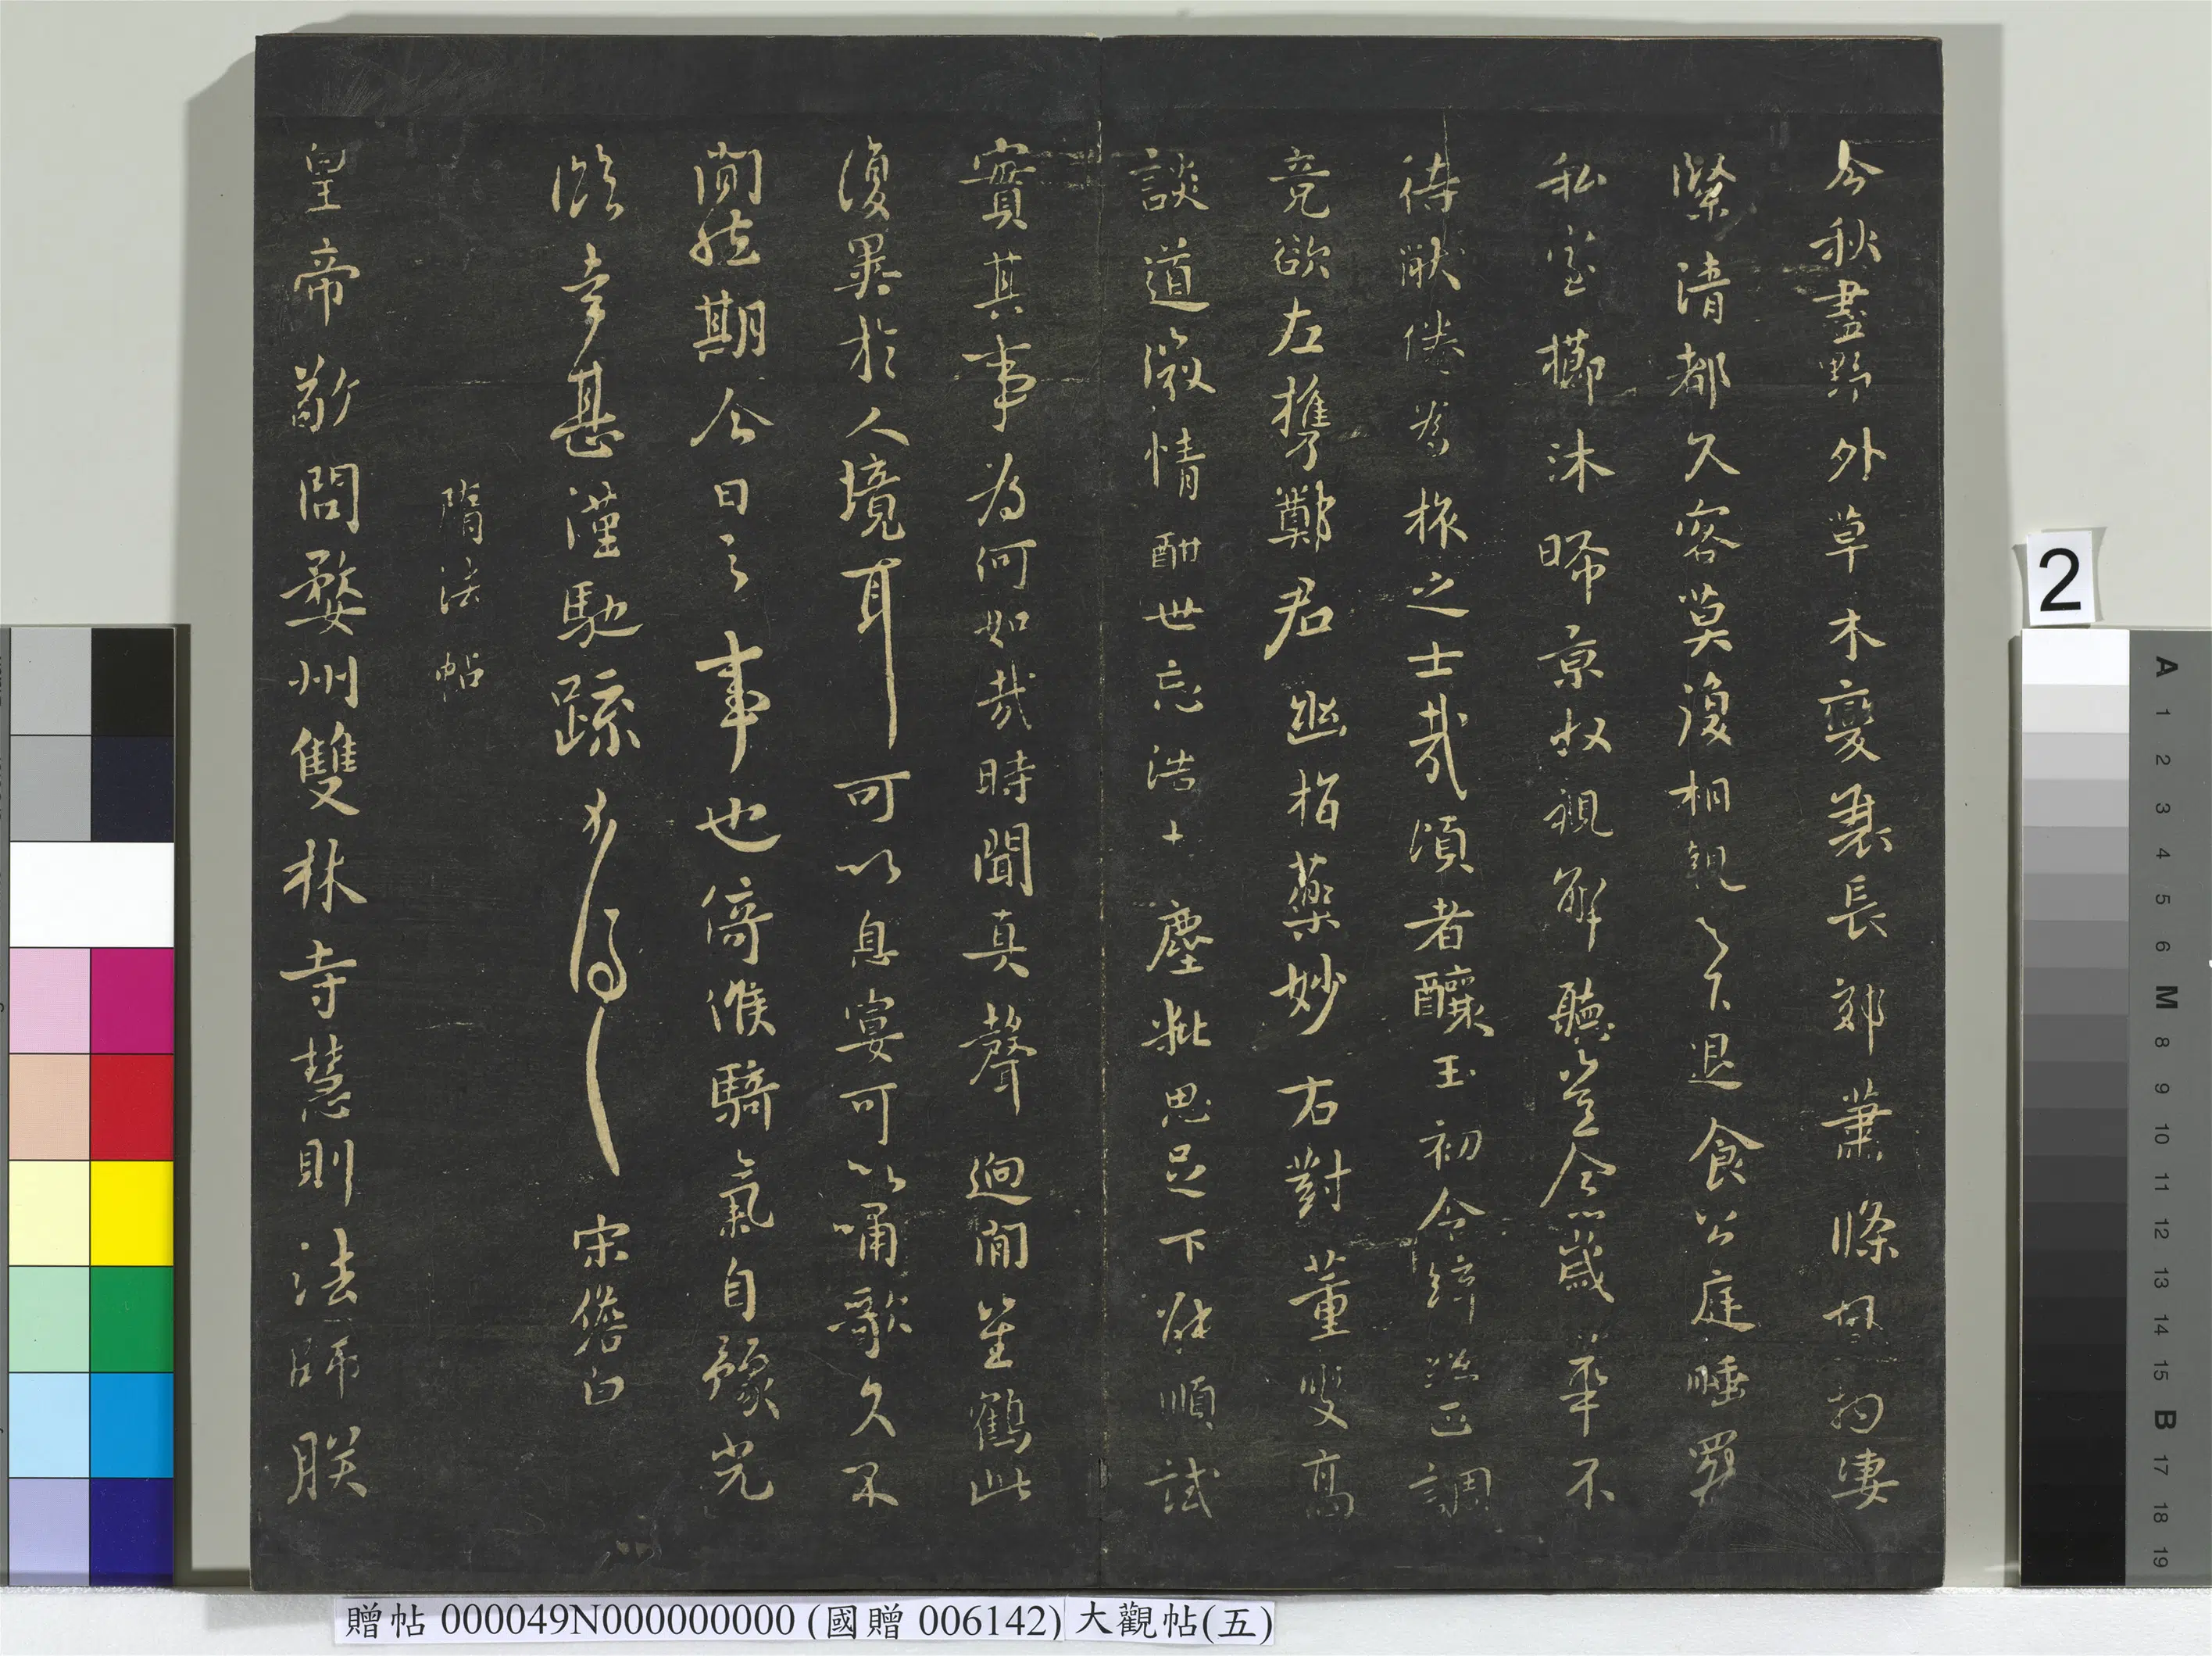 今秋盡野外草木變衰長郊蕭條風物凄
緊清都久容莫復相親之下退食公庭睡罷
私室櫛沐晞景收視解聽登念歲華不
待猒倦為旅之士哉頃者釀玉初令綷正調
竟欲左携鄭君幽指藥妙右對董叟高
談道微情酣世忘浩十塵粃思足下放順試
賓其事為何如哉時聞真聲迥閒笙鶴此
復異於人境耳可以息宴可以嘯歌久不
閒然期今日之事也倚候騎氣自豫光
臨幸甚謹馳疏 宋儋白
隋法帖
皇帝敬問婺州雙林寺慧則法師朕
2
A 1 2 3 4 5 6 M 8 9 10 11 12 13 14 15 B 17 18 19
贈帖 000049N000000000 (國贈 006142) 大觀帖(五)